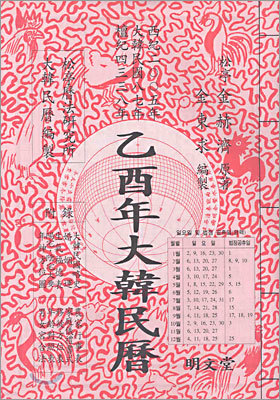 松亭 金赫濟 原著
金東求 編製
西紀二○○五年
大韓民國八七年
檀紀四三三八年
松亭曆法硏究所
大韓民曆編製
乙酉年大韓民曆
附錄
월별 일요일 법정공휴일
1월 2, 9, 16, 23, 30 1
2월 6, 13, 20, 27 8, 9, 10
3월 6, 13, 20, 27 1
4월 3, 10, 17, 24 5
5월 1, 8, 15, 22, 29 5, 15
6월 5, 12, 19, 26 6
7월 3, 10, 17, 24, 31 17
8월 7, 14, 21, 28 15
9월 4, 11, 18, 25 17, 18, 19
10월 2, 9, 16, 23, 30 3
11월 6, 13, 20, 27
12월 4, 11, 18, 25 25
明文堂